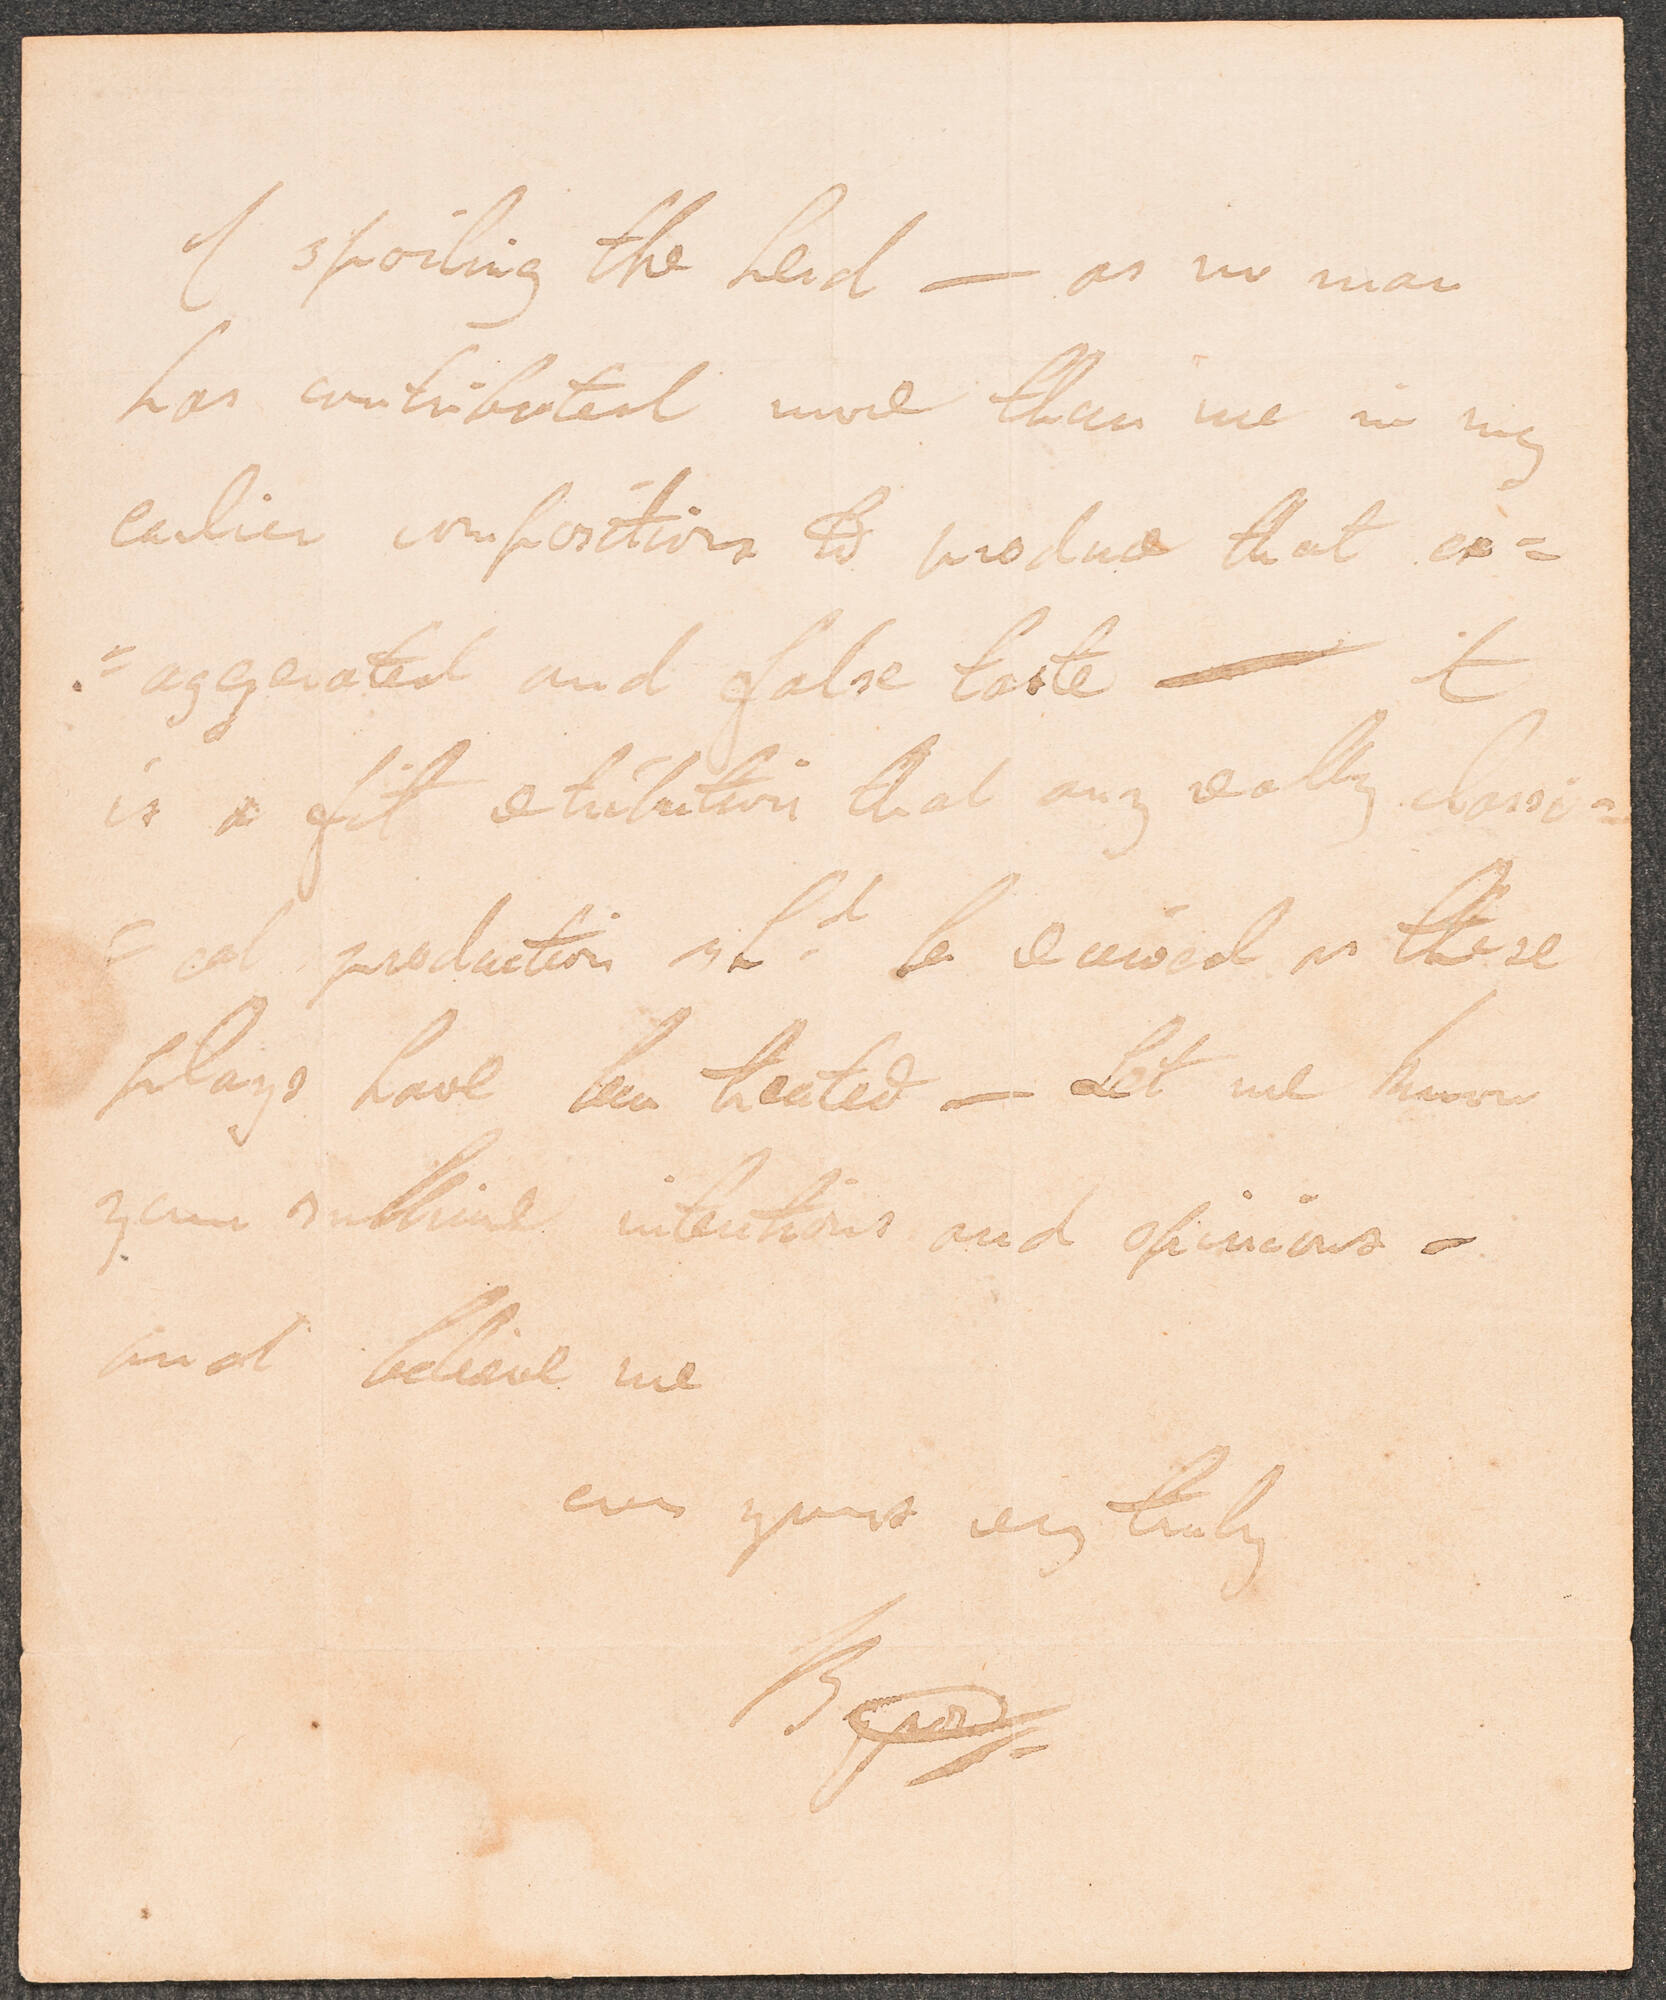 of spoiling the herd — as no man
has contributed more than me in my
earlier compositions to produce that ex=
=aggerated and false taste — it
is a fit retribution that any really classi=
=cal production sh.d be received as these
plays have been treated — Let me know
your sublime intentions and opinions —
and believe me
ever yours very truly
Byron